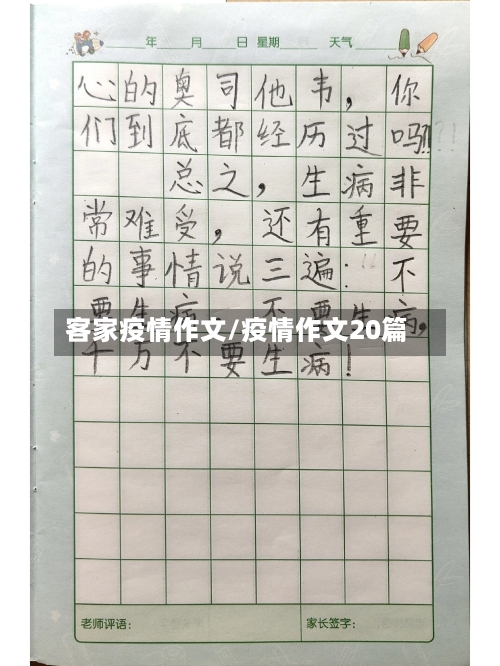 年 月 日 星期 天气
心的奥司他韦，你
们到底都经历过吗!!?!
总之，生病非
常难受，还有重要
的事情说三遍：“不
要生病，不要生病，
客家疫情作文/疫情作文20篇
千万不要生病！
老师评语： 家长签字：